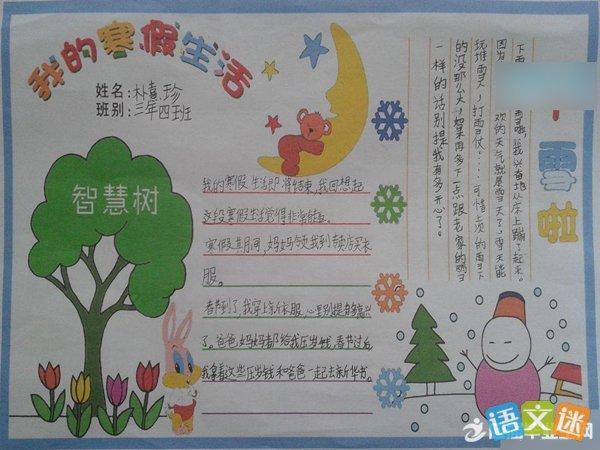 我的寒假生活
姓名:朴熹珍
班别:三年四班
智慧树
我的寒假生活即将结束,我回想起
这段寒假生活觉得非常
寒假其月间,妈妈领我到卖店买衣
服。
春节到了,我穿上新衣服,心里别提多高兴
了。爸爸妈妈都给我压岁钱,春节过后
我拿着这些压岁钱和爸爸一起去新华书。
下雪
雪啦
下雪 雪哦,我兴奋地从床上蹦了起来。
因为 欢的天气就属雪天了,雪天能
玩堆雪人,打雪仗……可惜上次的雪下
的没那么大,如果再多下一点跟老家的雪
一样的话别提我有多开心了。
语文迷